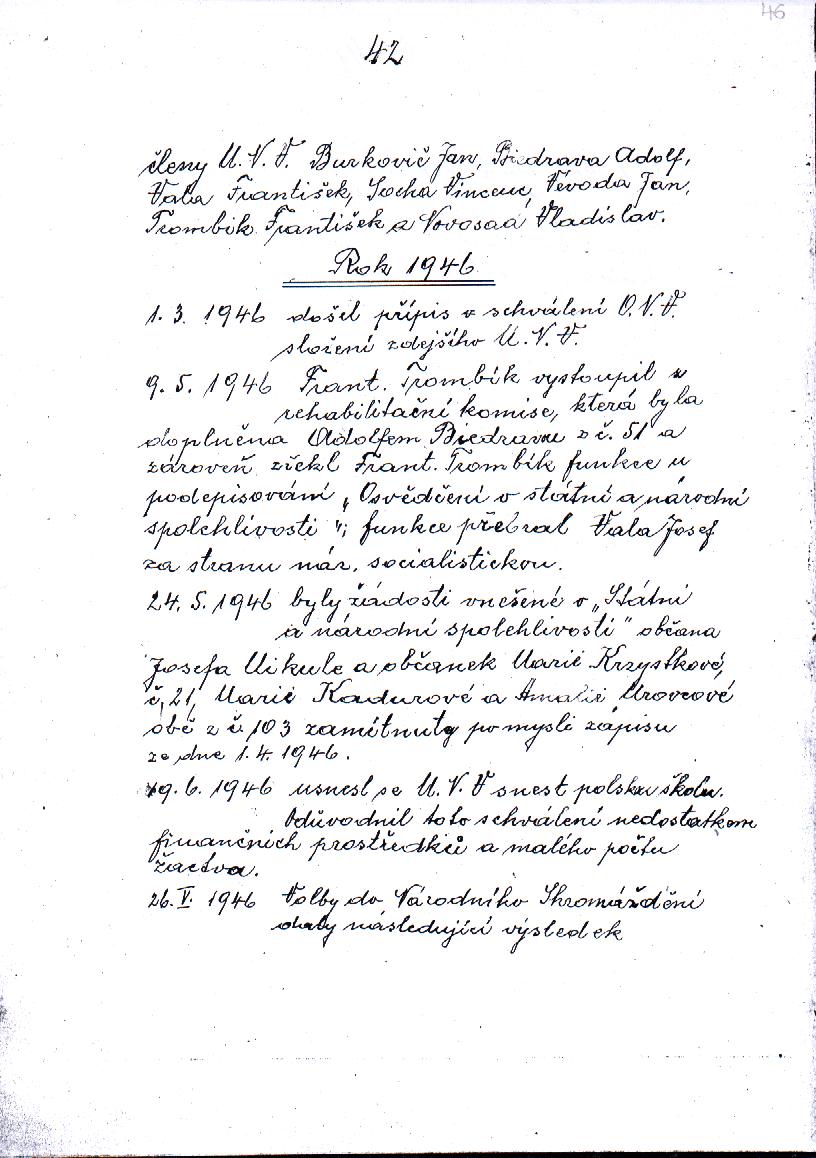 46
42
členy M. N. V. Burkovič Jan, Biedrava Adolf,
Vala František, Socha Vincenc, Vévoda Jan,
Trombik František a Novosad Vladislav.
Rok 1946
1. 3. 1946 došel přípis o schválení O. N. V.
složení zdejšího M. N. V.
9. 5. 1946 Frant. Trombik vystoupil z
rehabilitační komise, která byla
doplněna Adolfem Biedravou z č. 51 a
zároveň zřekl Frant. Trombik funkce u
podepisování „Osvědčení o státní a národní
spolehlivosti“; funkce přebral Vala Josef
za stranu nár. socialistickou.
24. 5. 1946 byly žádosti vnešené o „Státní
a národní spolehlivosti“ občana
Josefa Mikule a občanek Marie Krzystkové,
č. 21, Marie Kadurové a Amalie Mrovcové
obě z č. 103 zamítnuty po mysli zápisu
ze dne 1. 4. 1946.
19. 6. 1946 usnesl se M. N. V snest polskou školu.
Odůvodnil toto schválení nedostatkem
finančních prostředků a malého počtu
žactva.
26. V. 1946 Volby do Národního Shromáždění
daly následující výsledek